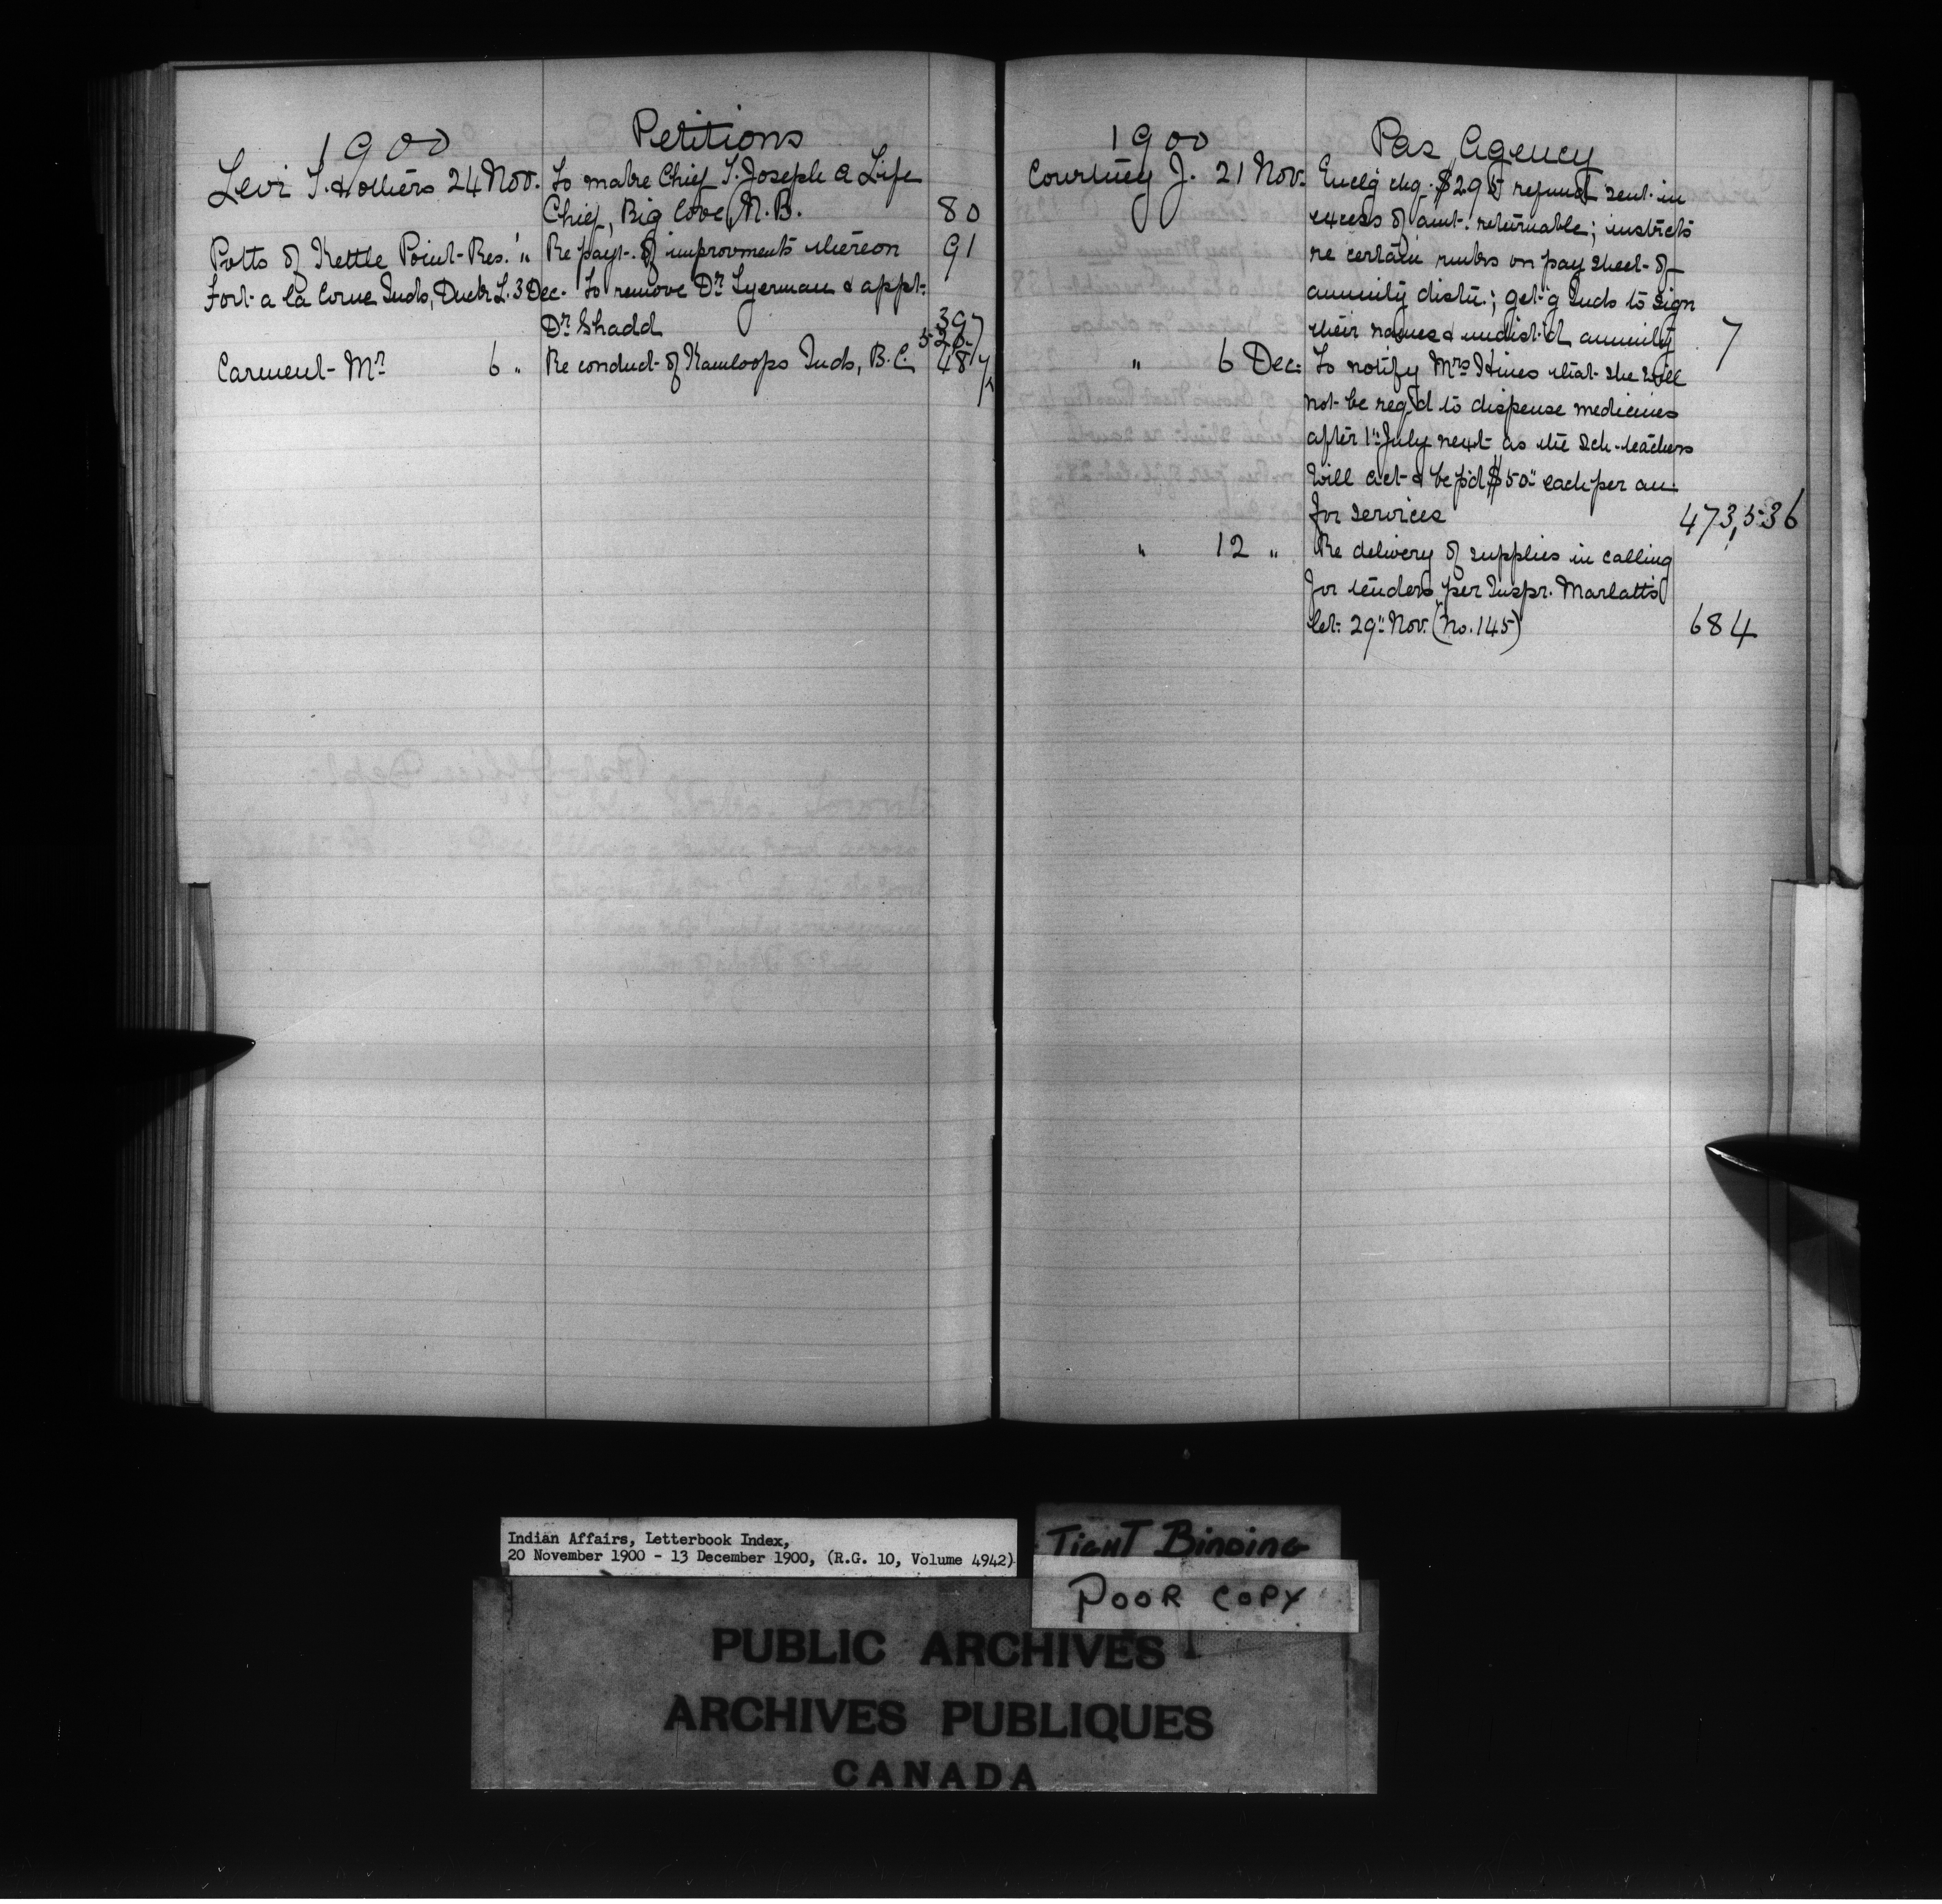 1900 Petitions
Levi T. & others 24 Nov. To make Chief T. Joseph a Life
Chief, Big Cove, N.B. 80
Potts of Kettle Point Res. " " Re payt. of improvments thereon 91
Fort a la Corne Inds, Duck L. 3 Dec. To remove Dr Tyerman & appt.
Dr Shadd 397
528
Carment Mr 6 " Re conduct of Kamloops Inds, B.C. 487
1900 Pas Agency
Courtney J. 21 Nov. Encl'g chq. $295 refund sent in
excess of amt. returnable; instructs
re certain numbs on pay sheet of
annuity distn.; get'g Inds to sign
their names & undist'd annuity 7
" 6 Dec. To notify Mrs Hines that she will
not be req'd to dispense medicines
after 1" July next as the Sch. teachers
will act & be p'd $50" each per an.
for services 473, 536
" 12 " Re delivery of supplies in calling
for tenders per Inspr. Marlatt's
let. 29" Nov. (No. 145) 684
Indian Affairs, Letterbook Index,
20 November 1900 - 13 December 1900, (R.G. 10, Volume 4942)
TIGHT BINDING
POOR COPY
PUBLIC ARCHIVES
ARCHIVES PUBLIQUES
CANADA